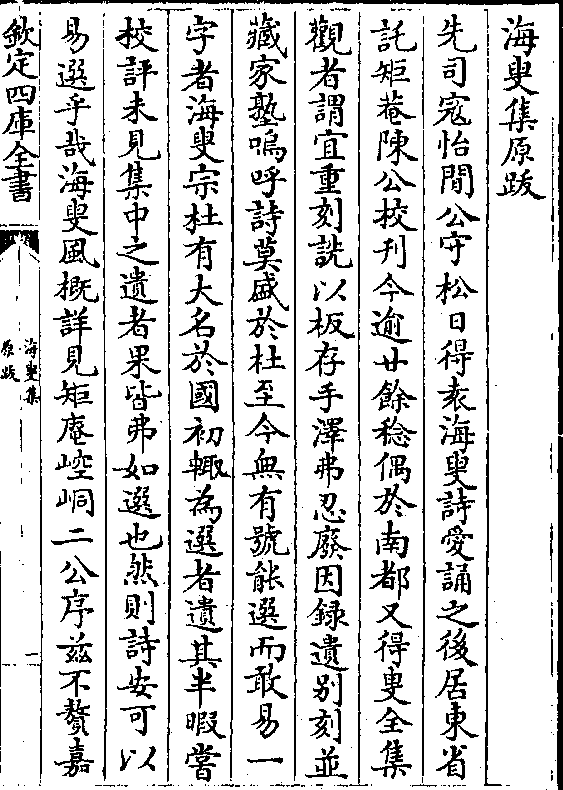 海叟集原跋
先司寇怡閒公守松日得袁海叟詩愛誦之後居東省
託矩菴陳公校刊今逾廿餘稔偶於南都又得叟全集
觀者謂宜重刻詵以板存手澤弗忍廢因録遺别刻並
藏家塾嗚呼詩莫盛於杜至今無有號能選而敢易一
字者海叟宗杜有大名於國初輙為選者遺其半暇當
校評未見集中之遺者果皆弗如選也然則詩安可以
易選乎哉海叟風概詳見矩庵崆峒二公序兹不贅嘉
欽定四庫全書
海叟集
原跋
一